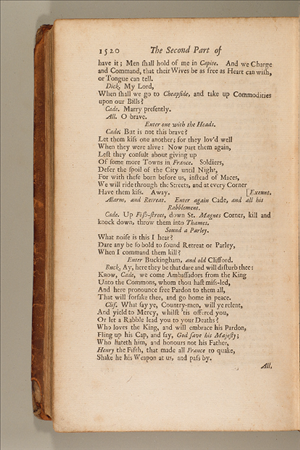 1520 The Second Part of
have it; Men shall hold of me in Capite. And we Charge
and Command, that their Wives be as free as Heart can wish,
or Tongue can tell.
Dick. My Lord,
When shall we go to Cheapside, and take up Commodities
upon our Bills?
Cade. Marry presently.
All. O brave.
Enter one with the Heads.
Cade. But is not this brave?
Let them kiss one another; for they lov'd well
When they were alive: Now part them again,
Lest they consult about giving up
Of some more Towns in France. Soldiers,
Defer the spoil of the City until Night,
For with these born before us, instead of Maces,
We will ride through the Streets, and at every Corner
Have them kiss. Away. [Exeunt.
Alarm, and Retreat. Enter again Cade, and all his
Rabblement.
Cade. Up Fish-street, down St. Magnes Corner, kill and
knock down, throw them into Thames.
Sound a Parley.
What noise is this I hear?
Dare any be so bold to sound Retreat or Parley,
When I command them kill?
Enter Buckingham, and old Clifford.
Buck. Ay, here they be that dare and will disturb thee:
Know, Cade, we come Ambassadors from the King
Unto the Commons, whom thou hast miss-led,
And here pronounce free Pardon to them all,
That will forsake thee, and go home in peace.
Clif. What say ye, Country-men, will ye relent,
And yield to Mercy, whilst 'tis offered you,
Or let a Rabble lead you to your Deaths?
Who loves the King, and will embrace his Pardon,
Fling up his Cap, and say, God save his Majesty;
Who hateth him, and honours not his Father,
Henry the Fifth, that made all France to quake,
Shake he his Weapon at us, and pass by.
All.